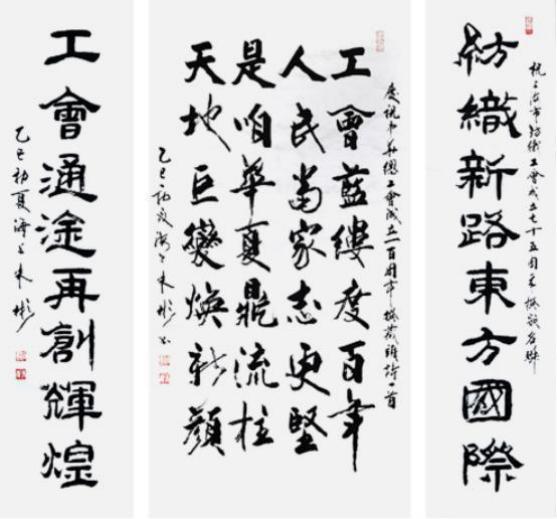 上海市紡織工會成立七十五周年撰嵌名联
紡織新路東方國際
慶祝中华總工會成立一百周年撰藏頭詩一首
工會藍縷度百年
人民當家志更堅
是咱華夏鼎流柱
天地巨變煥新顏
乙巳初夏海上
工會通途再創輝煌
乙巳初夏海上